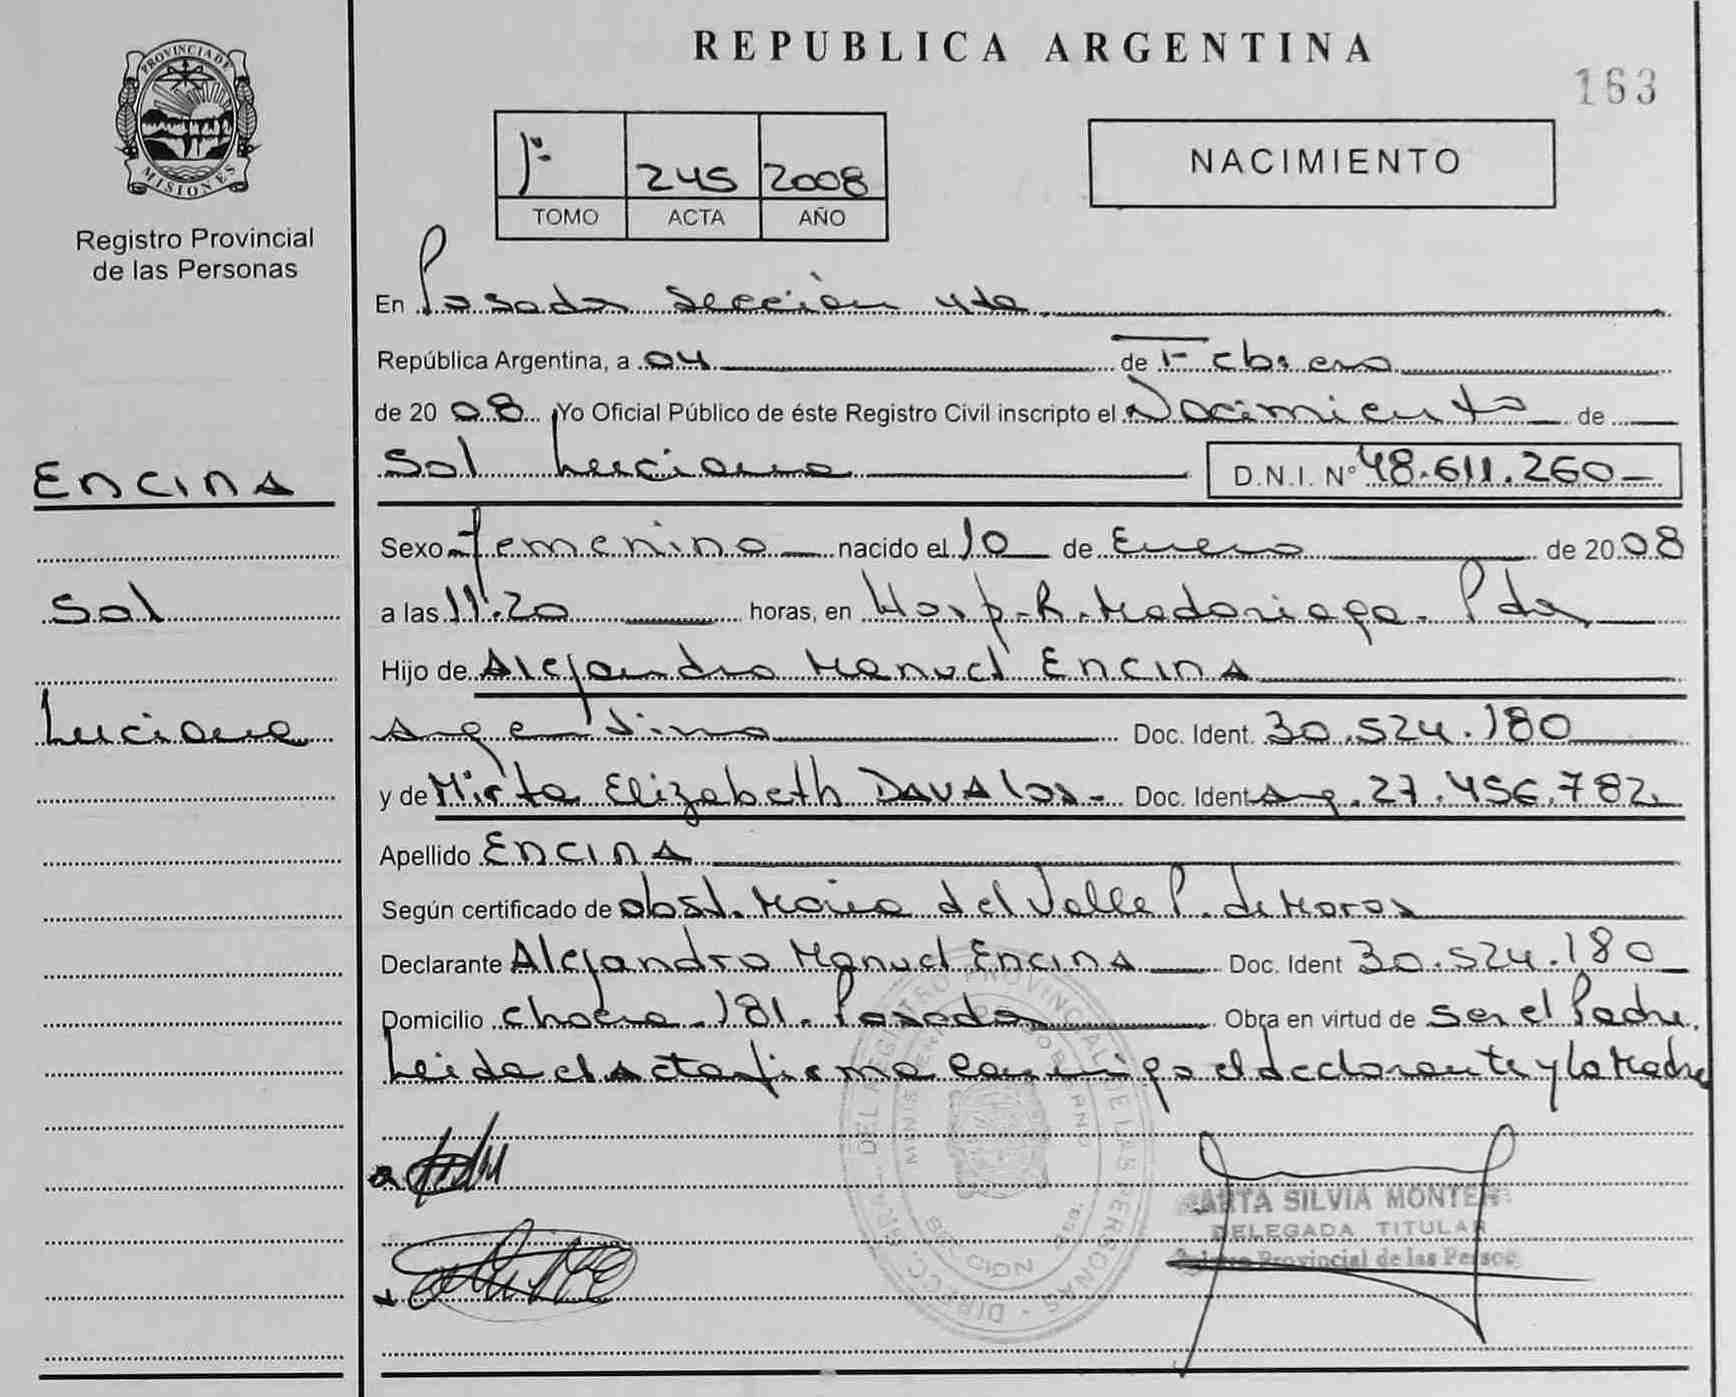 REPUBLICA ARGENTINA
163
PROVINCIA DE
MISIONES
Registro Provincial
de las Personas
1º 245 2008
TOMO ACTA AÑO
NACIMIENTO
En Posadas Sección 4ta
República Argentina, a 04 de Febrero
de 20 08 Yo Oficial Público de éste Registro Civil inscripto el Nacimiento de
Sol Luciana D.N.I. Nº 48.611.260
ENCINA
Sexo femenino nacido el 10 de Enero de 20 08
Sol
a las 11:20 horas, en Hosp. R. Madariaga - Pdas
Hijo de Alejandro Manuel ENCINA
Luciana
Argentino Doc. Ident. 30.524.180
y de Mirta Elizabeth DAVAlos - Doc. Ident Arg. 27.456.782
Apellido ENCINA
Según certificado de obst. Maria del Valle P. de Moros
Declarante Alejandro Manuel Encina Doc. Ident 30.524.180
Domicilio chacra 181 - Posadas Obra en virtud de ser el Padre.
Leida el Acta firma conmigo el declarante y la Madre
DEL REGISTRO PROVINCIAL DE LAS PERSONAS
SILVIA
DELEGADA TITULAR
Provincial de las